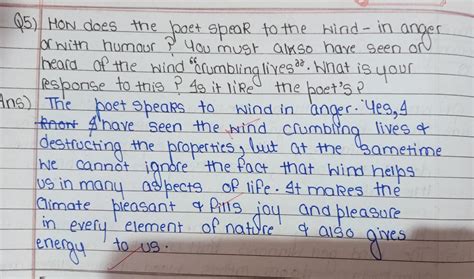 Q5) How does the poet speak to the wind - in anger
or with humour? You must also have seen or
heard of the wind "crumbling lives". What is your
response to this? Is it like the poet's?
Ans) The poet speaks to wind in anger. Yes, I
know I have seen the wind crumbling lives &
destructing the properties, but at the sametime
we cannot ignore the fact that wind helps
us in many aspects of life. It makes the
climate pleasant & fills joy and pleasure
in every element of nature & also gives
energy to us.